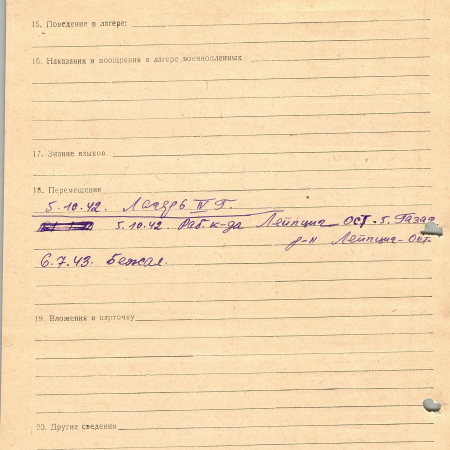 15. Поведение в лагере:
16. Наказания и поощрения в лагере военнопленных
17. Знание языков
18. Перемещения
5.10.42. Лагерь IV Г.
5.10.42. Раб. к-да Лейпциг-Ост. 5. Газад
р-н Лейпциг-Ост.
6.7.43. Бежал.
19. Вложения в карточку
20. Другие сведения